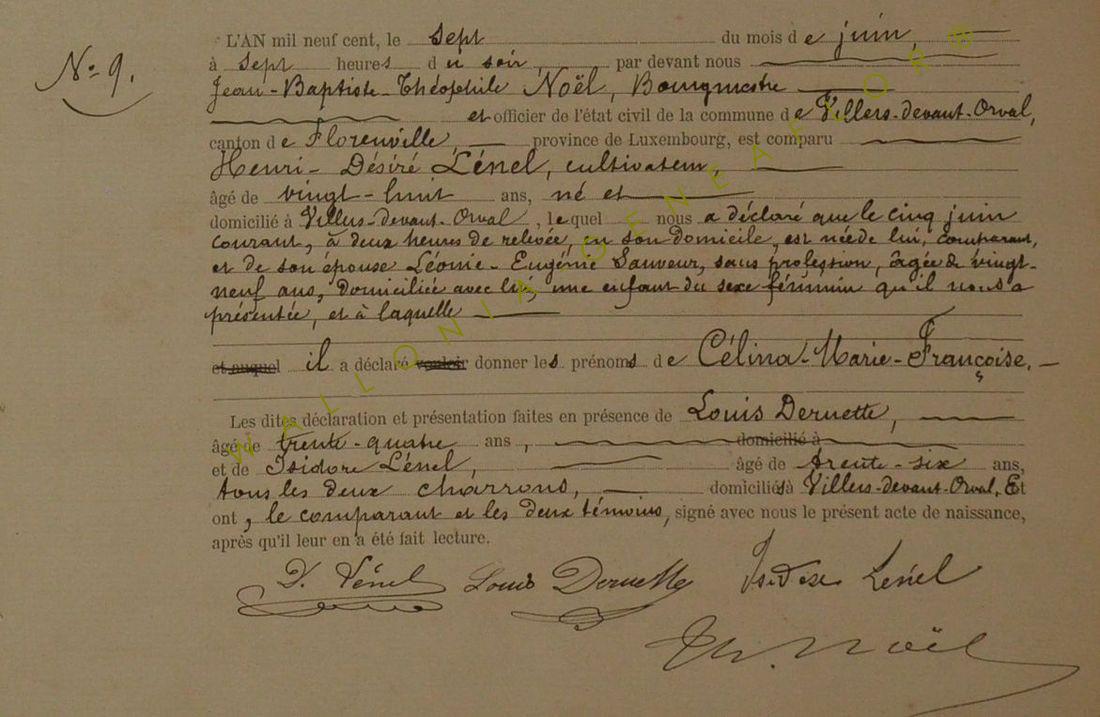 L'AN mil neuf cent, le sept du mois de juin,
No 9.
à sept heures du soir, par devant nous
Jean-Baptiste-Théophile Noël, Bourgmestre
et officier de l'état civil de la commune de Villers-devant-Orval,
canton de Florenville, province de Luxembourg, est comparu
Henri-Désiré Lénel, cultivateur,
âgé de vingt-huit ans, né et
domicilié à Villers-devant-Orval, lequel nous a déclaré que le cinq juin
courant, à deux heures de relevée, en son domicile, est née de lui, comparant,
et de son épouse Léonie-Eugénie Sauveur, sans profession, âgée de vingt-
neuf ans, domiciliée avec lui, une enfant du sexe féminin qu'il nous a
présentée, et à laquelle
et auquel il a déclaré vouloir donner les prénoms de Célina-Marie-Françoise.
Les dites déclaration et présentation faites en présence de Louis Deruette,
âgé de trente-quatre ans, domicilié à
et de Isidore Lénel, âgé de trente-six ans,
tous les deux charrons, domiciliés à Villers-devant-Orval. Et
ont, le comparant et les deux témoins, signé avec nous le présent acte de naissance,
après qu'il leur en a été fait lecture.
D. Lénel Louis Deruette Isidore Lénel
Th. Noël
WALLONIA GENEAFLORE